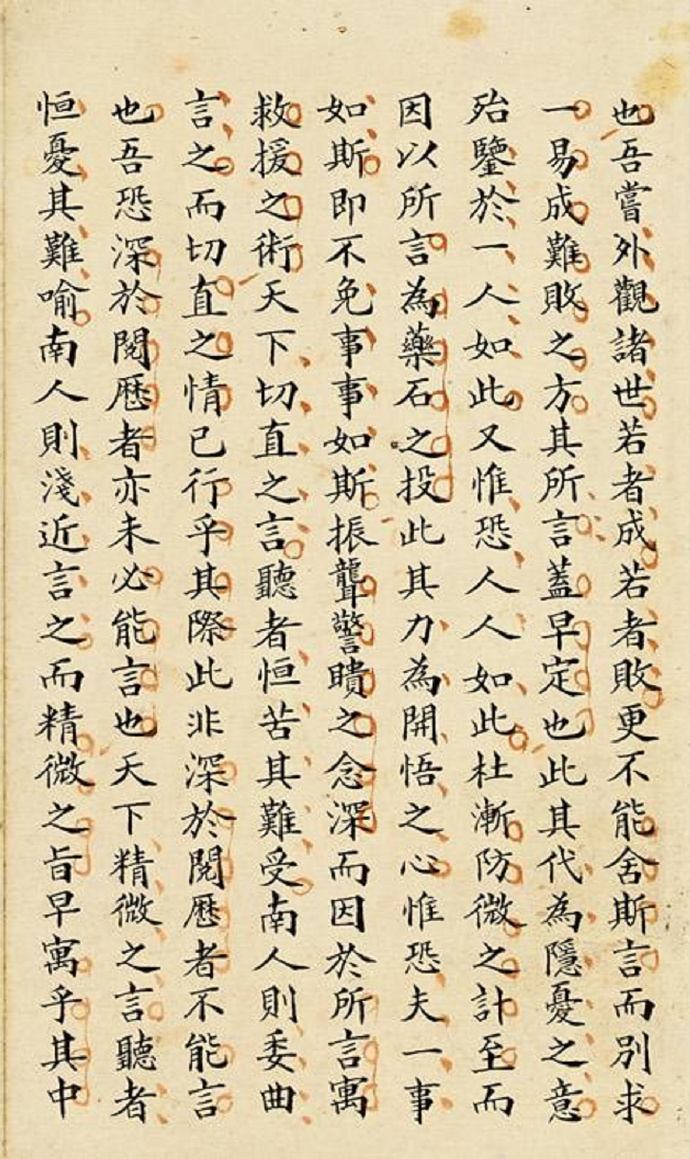 也吾嘗外觀諸世若者成若者敗更不能舍斯言而別求
一易成難敗之方其所言蓋早定也此其代為隱憂之意
殆鑒於一人如此又惟恐人人如此杜漸防微之計至而
因以所言為藥石之投此其力為開悟之心惟恐夫一事
如斯即不免事事如斯振聾警聵之念深而因於所言寓
救援之術天下切直之言聽者恒苦其難受南人則委曲
言之而切直之情已行乎其際此非深於閱歷者不能言
也吾恐深於閱歷者亦未必能言也天下精微之言聽者
恒憂其難喻南人則淺近言之而精微之旨早寓乎其中